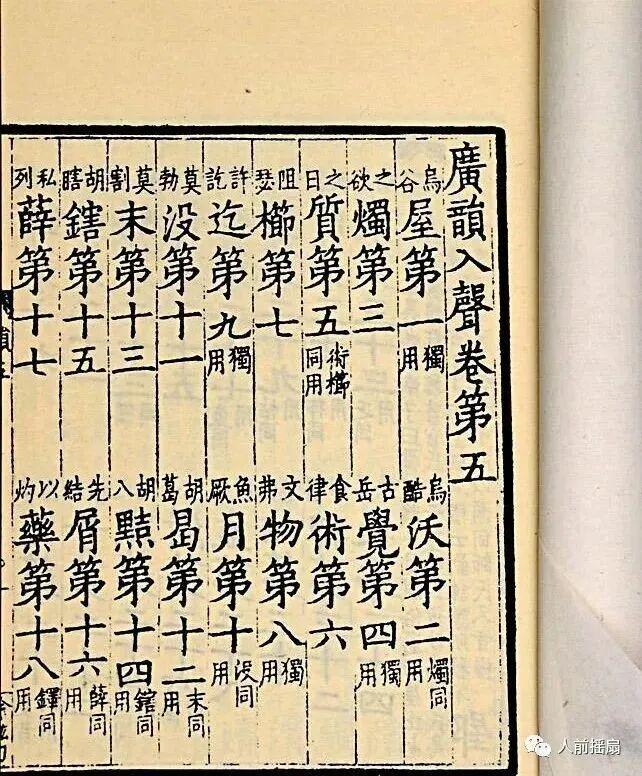 廣韻入聲卷第五
烏谷屋第一獨用 烏酷沃第二燭同用
之欲燭第三 古岳覺第四獨用
之日質第五術櫛同用 食律術第六
阻瑟櫛第七 文弗物第八獨用
許訖迄第九獨用 魚厥月第十没同用
莫勃没第十一 胡葛曷第十二末同用
莫割末第十三 胡八黠第十四鎋同用
胡瞎鎋第十五 先結屑第十六薛同用
私列薛第十七 以灼藥第十八鐸同用
人前摇扇